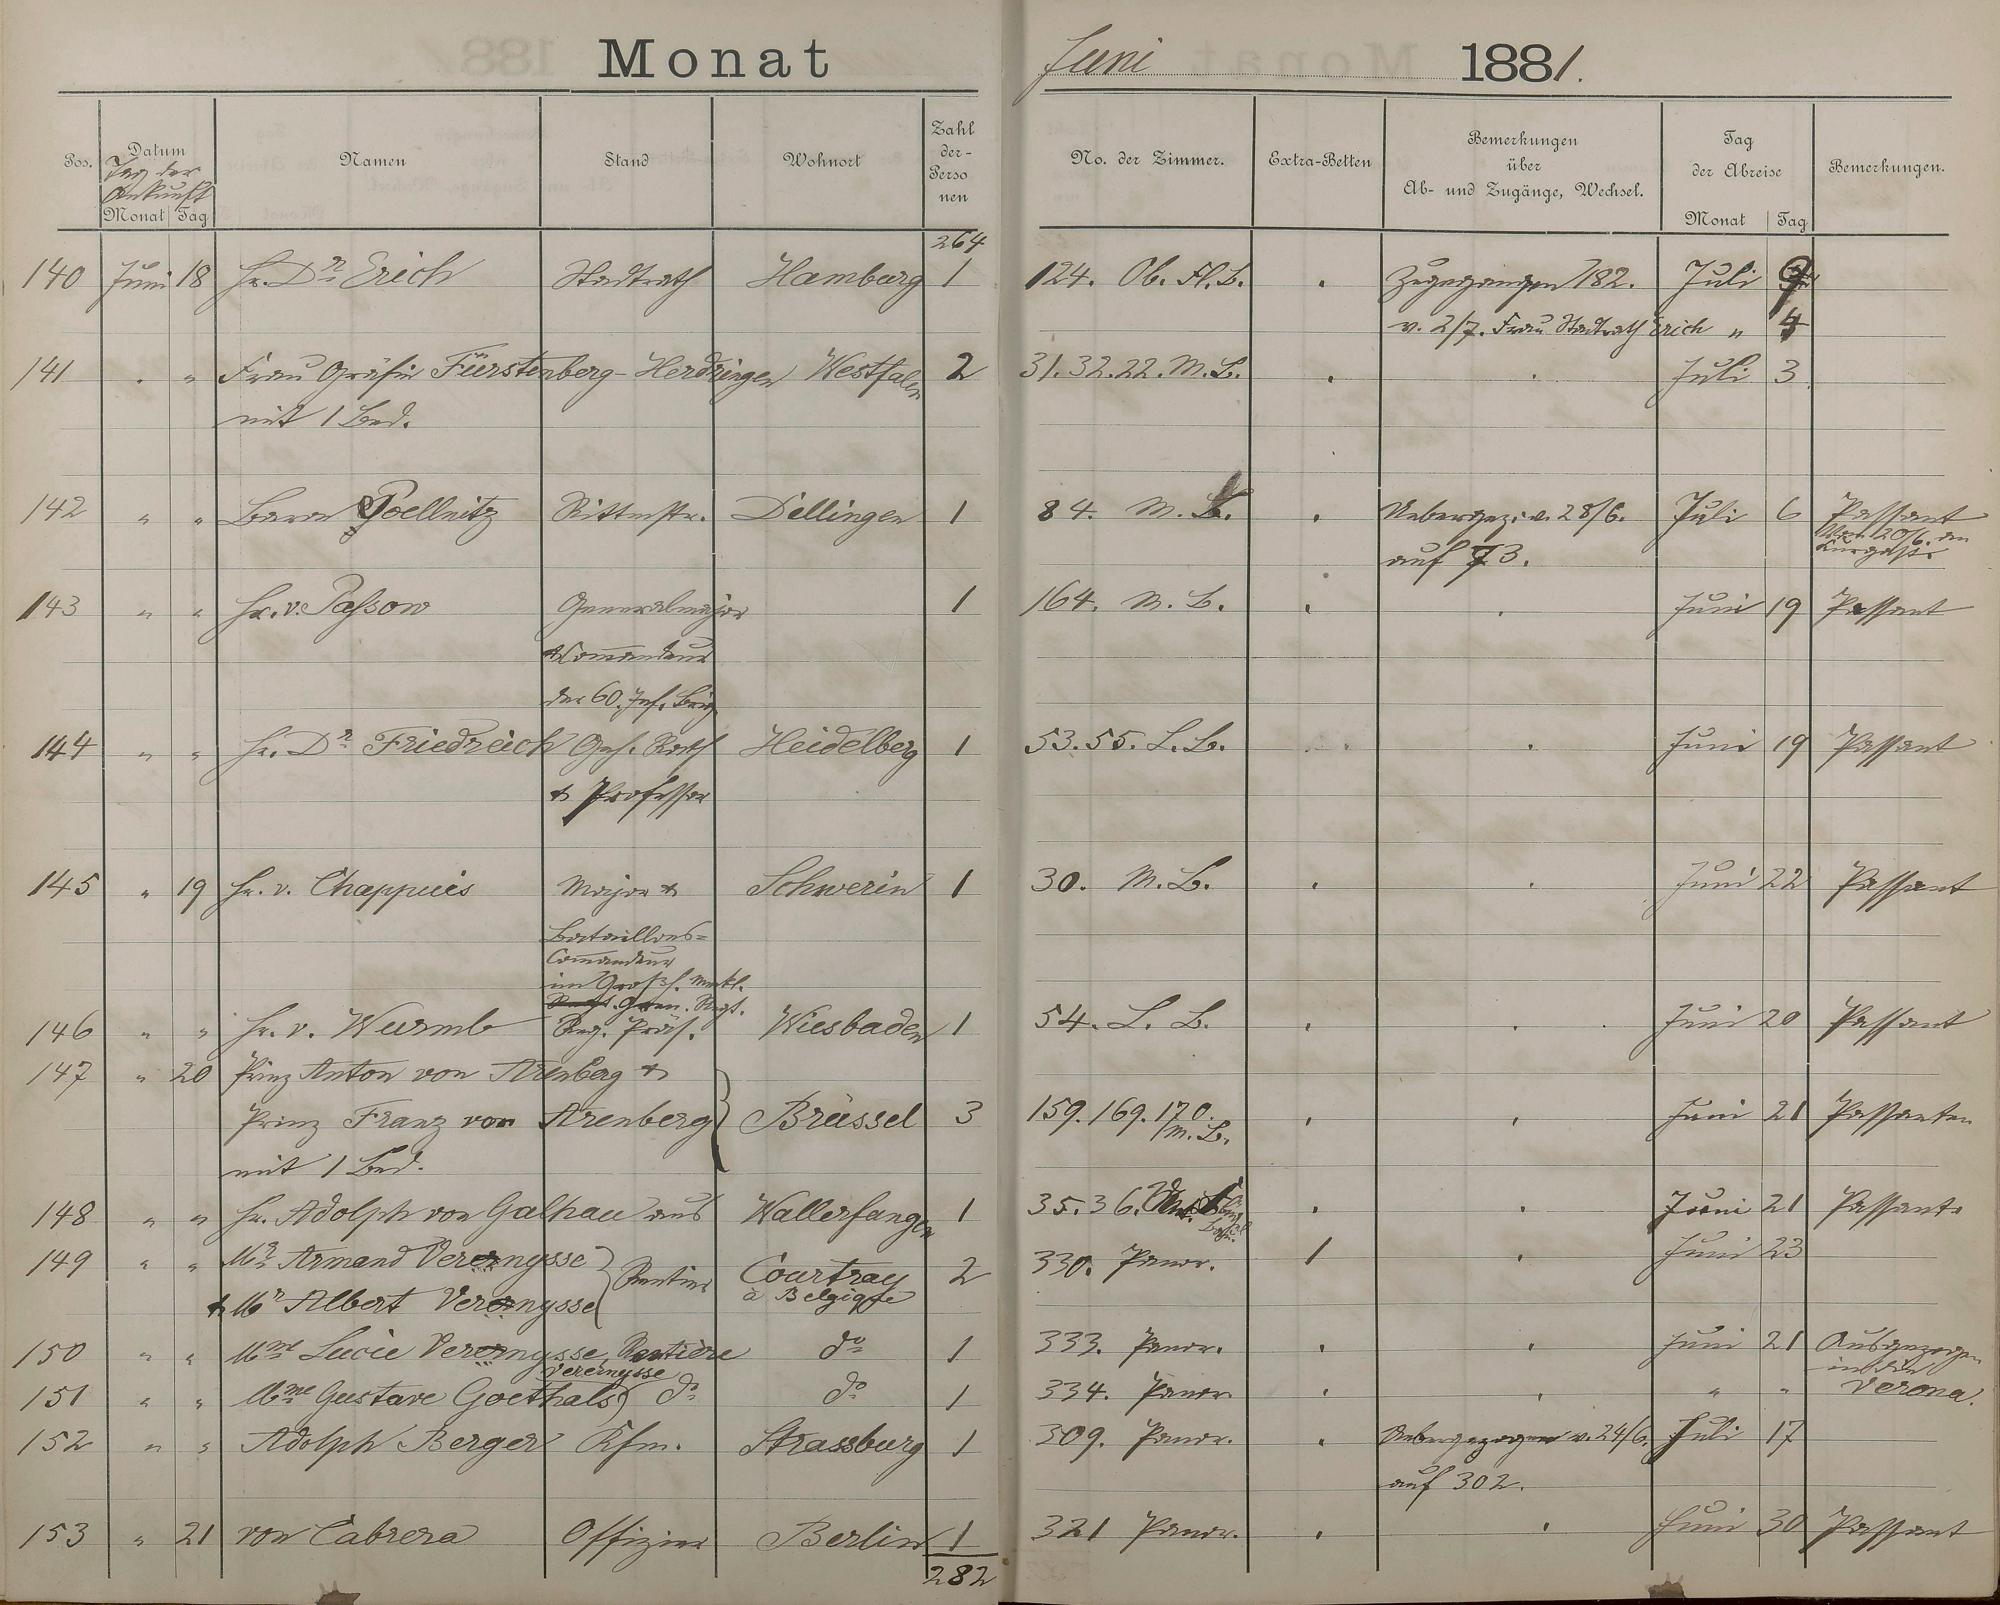 Monat Juni 1881.
Pos. Datum Namen Stand Wohnort Zahl der Perso nen No. der Zimmer. Extra-Betten Bemerkungen über Ab- und Zugänge, Wechsel. Tag der Abreise Bemerkungen.
Tag der
Ankunft
Monat Tag Monat Tag
264
140 Juni 18 Hr. Dr Erich Stadtrath Hamburg 1 124. Ob. Fl. B. Zugegangen 182. Juli
v. 2/7. Frau Stadtrath Erich " 4
141 " Frau Gräfin Fürstenberg-Herdringen Westfalen 2 31.32.22. M.B. Juli 3
mit 1 Bed.
142 " " Baron Poellnitz Rittmstr. Dillingen 1 84. M. B. Uebergez. v. 28/6. Juli 6 Passant
auf 73. 20/6. an
Kurgast
143 " " Hr. v. Passow Generalmajor 1 164. M. B. Juni 19 Passant
& Commandeur
der 60. Inf. Brig.
144 " " Hr. Dr Friedreich Geh. Rath Heidelberg 1 53.55. L.B. Juni 19 Passant
& Professor
145 " 19 Hr. v. Chappuis Major & Schwerin 1 30. M. B. Juni 22 Passant
Bataillons=
Commandeur
im Großh. Meckl.
Gren. Regt.
146 " " Hr. v. Wurmb Reg. Präs. Wiesbaden 1 54. L. B. Juni 20 Passant
147 " 20 Prinz Anton von Arenberg &
Prinz Franz von Arenberg Brüssel 3 159.169.170. M. B. Juni 21 Passanten
mit 1 Bed.
148 " " Hr. Adolph von Galhau aus Wallerfangen 1 35.36. Juni 21 Passant.
149 " " Mr Armand Verernysse Rentier Courtray 2 330. Panor. 1 Juni 23
& Mr Albert Verernysse a Belgique
150 " " Mme Lucie Verernysse, Rentière do 1 333. Panor. Juni 21 Ausgezogen
Verernysse in die
151 " " Mme Gustave Goethals do do 1 334. Panor. " " Verona.
152 " " Adolph Berger Kfm. Strassburg 1 309. Panor. Uebergezogen v. 24/6. Juli 17
auf 302.
153 " 21 von Cabrera Offizier Berlin 1 321 Panor. Juni 30 Passant
282